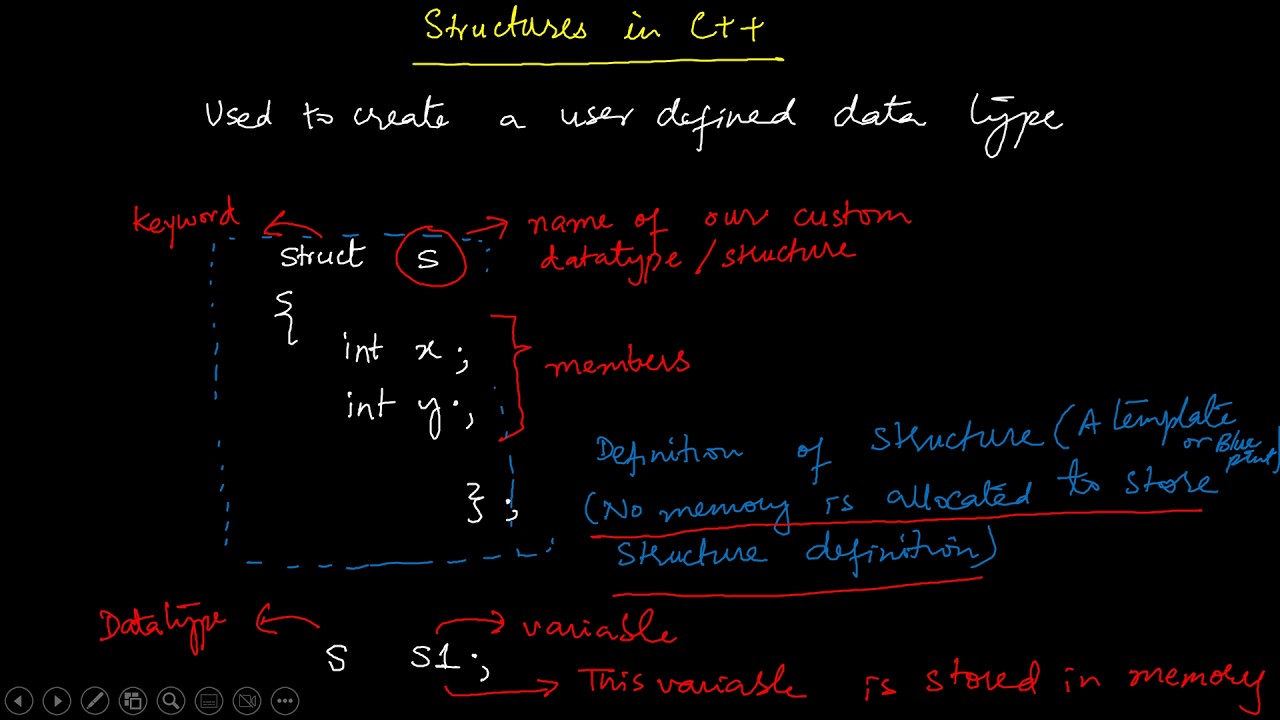 Structures in C++
Used to create a user defined data type
Keyword
name of our custom
struct S
datatype / structure
{
int x;
members
int y;
Definition of structure (A template
or Blue
print)
};
(No memory is allocated to store
structure definition)
Datatype
variable
S S1;
This variable is stored in memory